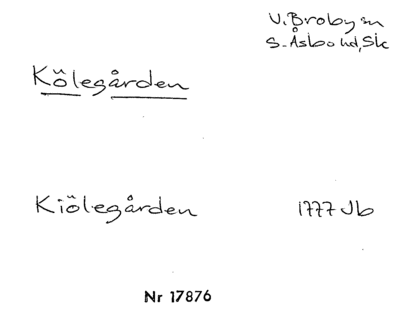 V. Broby sn
S. Åsbo hd, Sk
Kölegården
Kiölegården 1777 Jb
Nr 17876